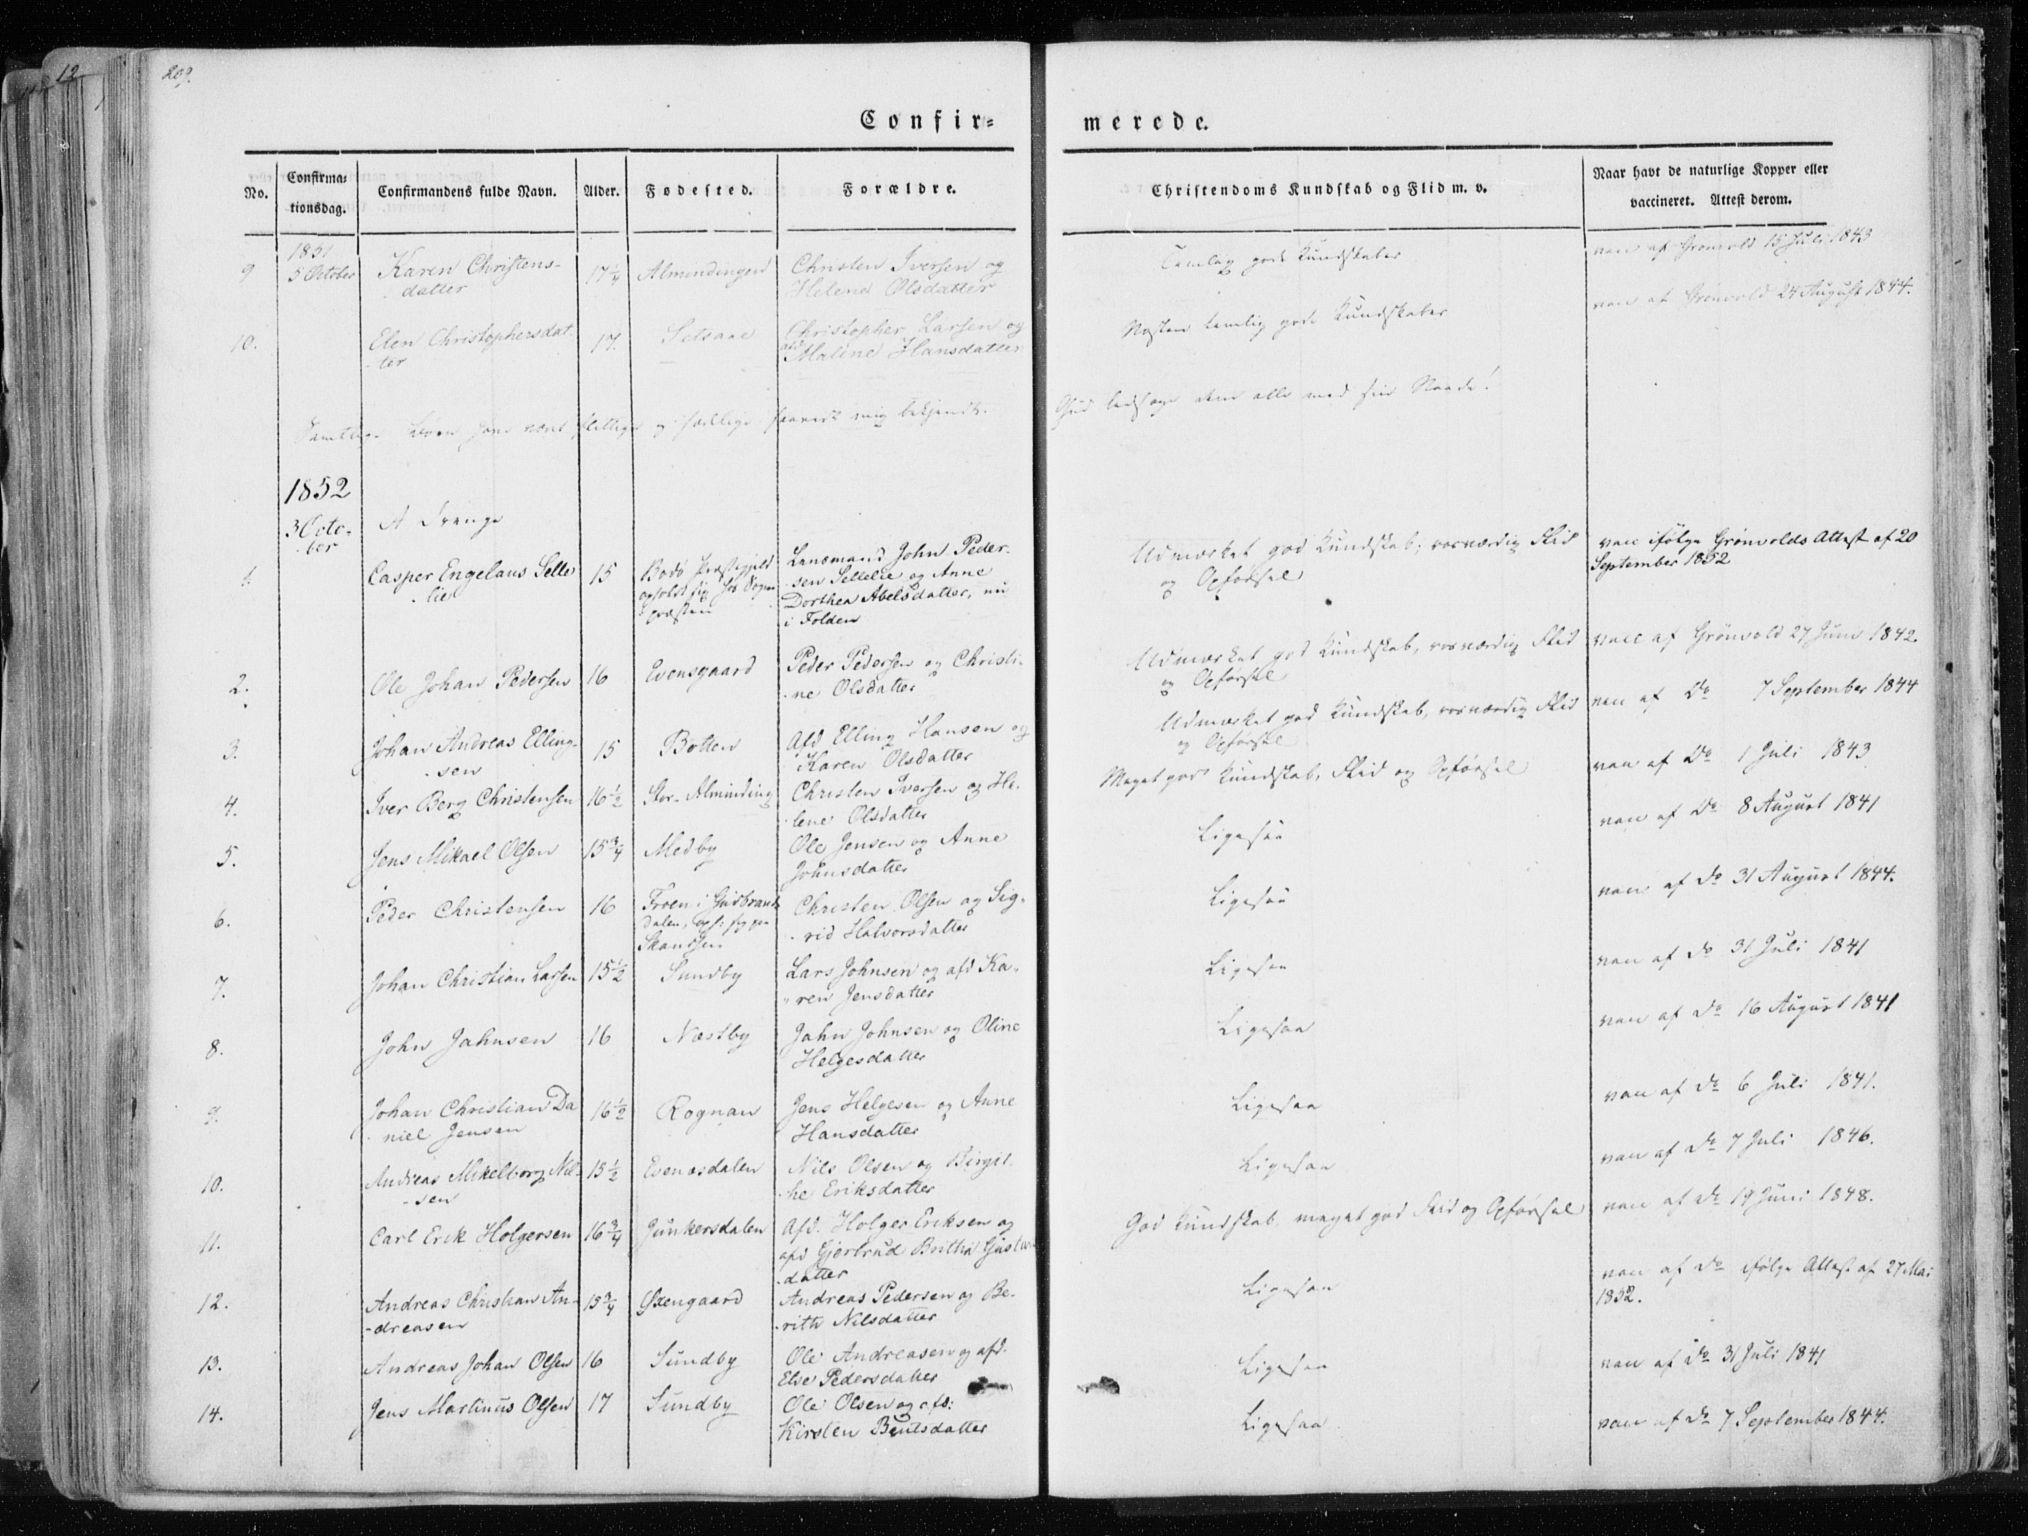 12
209.
Confir=
merede.
No.
Confirma=
tionsdag.
Confirmandens fulde Navn.
Alder.
Fødested.
Forældre.
Christendoms Kundskab og Flid m. v.
Naar havt de naturlige Kopper eller
vaccineret. Attest derom.
1851
9 5 October Karen Christens- 17¼ Almindingen Christen Iversen og Temlig gode Kundskaber vacc af Grønvold 15 Juli 1843
datter Helene Olsdatter
10. Elen Christophersdat- 17. Setsaae Christopher Larsen og Næsten temlig gode Kundskaber vacc af Grønvold 24 August 1844.
-ter Maline Hansdatter
Samtlige Børn have været flittige og sædelige saavidt mig bekjendt.
Gud ledsage dem alle med sin Naade!
1852
3 Octo-
ber
A Drenge
1. Casper Engelaus Sette- 15 Bodø Præstegjeld Lensmand John Peder- Udmærket god Kundskab, rosværdig Flid vacc ifølge Grønvolds Attest af 20
lie opholdt sig hos Sogne- sen Settelie og Anne og Opførsel September 1852
præsten Dorthea Abelsdatter, nu
i Folden
2. Ole Johan Pedersen 16 Evensgaard Peder Pedersen og Christi- Udmærket god Kundskab, rosværdig Flid vacc af Grønvold 27 Juni 1842.
ne Olsdatter og Opførsel
3. Johan Andreas Elling- 15 Botten Afd Elling Hansen og Udmærket god Kundskab, rosværdig Flid vacc af Do 7 September 1844
sen Karen Olsdatter og Opførsel
4. Iver Berg Christensen 16½ Stor-Alminding Christen Iversen og He- Meget god Kundskab, Flid og Opførsel vacc af Do 1 Juli 1843
lene Olsdatter
5. Jens Mikael Olsen 15¾ Medby Ole Jensen og Anne Ligesaa vacc af Do 8 August 1841
Johnsdatter
6. Peder Christensen 16 Froen i Gudbrands- Christen Olsen og Sig- Ligesaa vacc af Do 31 August 1844.
dalen, oph: sig paa rid Halvorsdatter
Skandsen
7. Johan Christian Larsen 15½ Sundby Lars Johnsen og afd Ka- Ligesaa vacc af Do 31 Juli 1841
ren Jensdatter
8. John Jahnsen 16 Næstby Jahn Johnsen og Oline Ligesaa vacc af Do 16 August 1841
Helgesdatter
9. Johan Christian Da 16½ Rognan Jens Helgesen og Anne Ligesaa vacc af Do 6 Juli 1841.
niel Jensen Hansdatter
10. Andreas Mikelborg Nil- 15½ Evenesdalen Nils Olsen og Birgit- Ligesaa vacc af Do 7 Juli 1846.
-sen he Eriksdatter
11. Carl Erik Holgersen 16¾ Junkersdalen Afd. Holger Eriksen og God Kundskab, meget god Flid og Opførsel vacc af Do 19 Juni 1848.
afd Gjertrud Britha Gustav-
datter
12. Andreas Christian An- 15¾ Øxengaard Andreas Pedersen og Be- Ligesaa vacc af Do ifølge Attest af 27 Mai
-dreasen rith Nilsdatter 1852.
13. Andreas Johan Olsen 16 Sundby Ole Andreasen og afd. Ligesaa vacc af Do 31 Juli 1841
Else Pedersdatter
14. Jens Martinus Olsen 17 Sundby Ole Olsen og afd: Ligesaa vacc af Do 7 September 1844.
Kirsten Bentsdatter